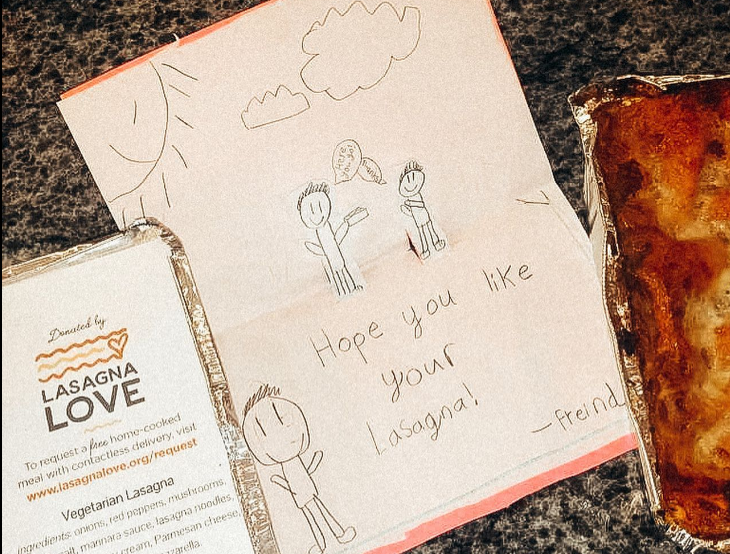 Here
you go!
thanks
Hope you like
your
Lasagna!
—freind
Donated by
LASAGNA
LOVE
To request a free home-cooked
meal with contactless delivery, visit
www.lasagnalove.org/request
Vegetarian Lasagna
ingredients: onions, red peppers, mushrooms,
salt, marinara sauce, lasagna noodles,
cream, Parmesan cheese,